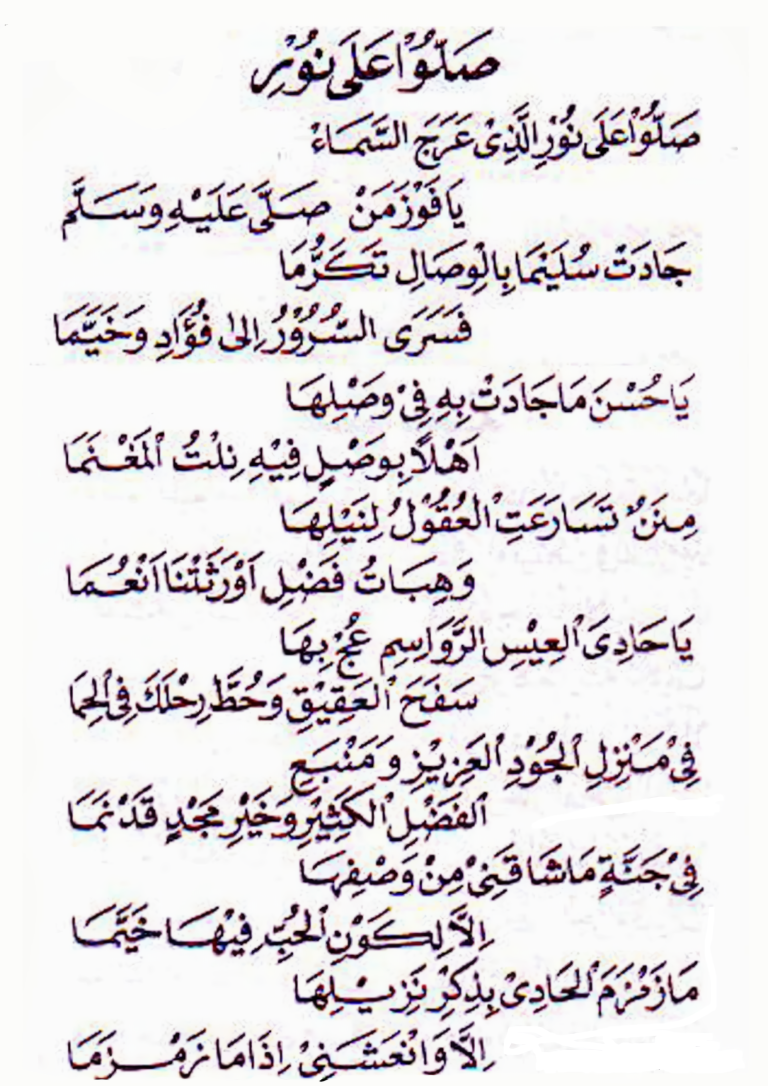 صَلُّوْا عَلَى نُوْرِ
صَلُّوْا عَلَى نُوْرِ الَّذِىْ عَرَجَ السَّمَاءْ
يَا فَوْزَ مَنْ صَلَّى عَلَيْهِ وَسَلَّمَ
جَادَتْ سُلَيْمَا بِالْوِصَالِ تَكَرُّمَا
فَسَرَى السُّرُوْرُ اِلىٰ فُؤَادِ وَخَيَّمَا
يَا حُسْنَ مَا جَادَتْ بِهِ فِىْ وَصْلِهَا
اَهْلًا بِوَصْلٍ فِيْهِ نِلْتُ الْمَغْنَمَا
مِنَنٌ تَسَارَعَتِ الْعُقُوْلُ لِنَيْلِهَا
وَهِبَاتُ فَضْلِ اَوْرَثَتْنَا اَنْعُمَا
يَا حَادِىَ الْعِيْسِ الرَّوَاسِمِ عُجْ بِهَا
سَفَحَ الْعَقِيْقِ وَحُطَّ رِحْلَكَ فِى الْحِمَا
فِىْ مَنْزِلِ الْجُوْدِ الْعَزِيْزِ وَمَنْبَعِ
الْفَضْلِ الْكَثِيْرِ وَخَيْرِ مَجْدٍ قَدْ نَمَا
فِىْ جَنَّةٍ مَا شَاقَنِىْ مِنْ وَصْفِهَا
اِلَّا لِكَوْنِ الْحُبِّ فِيْهَا خَيَّمَا
مَا زَمْزَمَ الْحَادِىْ بِذِكْرِ نَزِيْلِهَا
اِلَّا وَانْعَشَنِىْ اِذَا مَا زَمْزَمَا